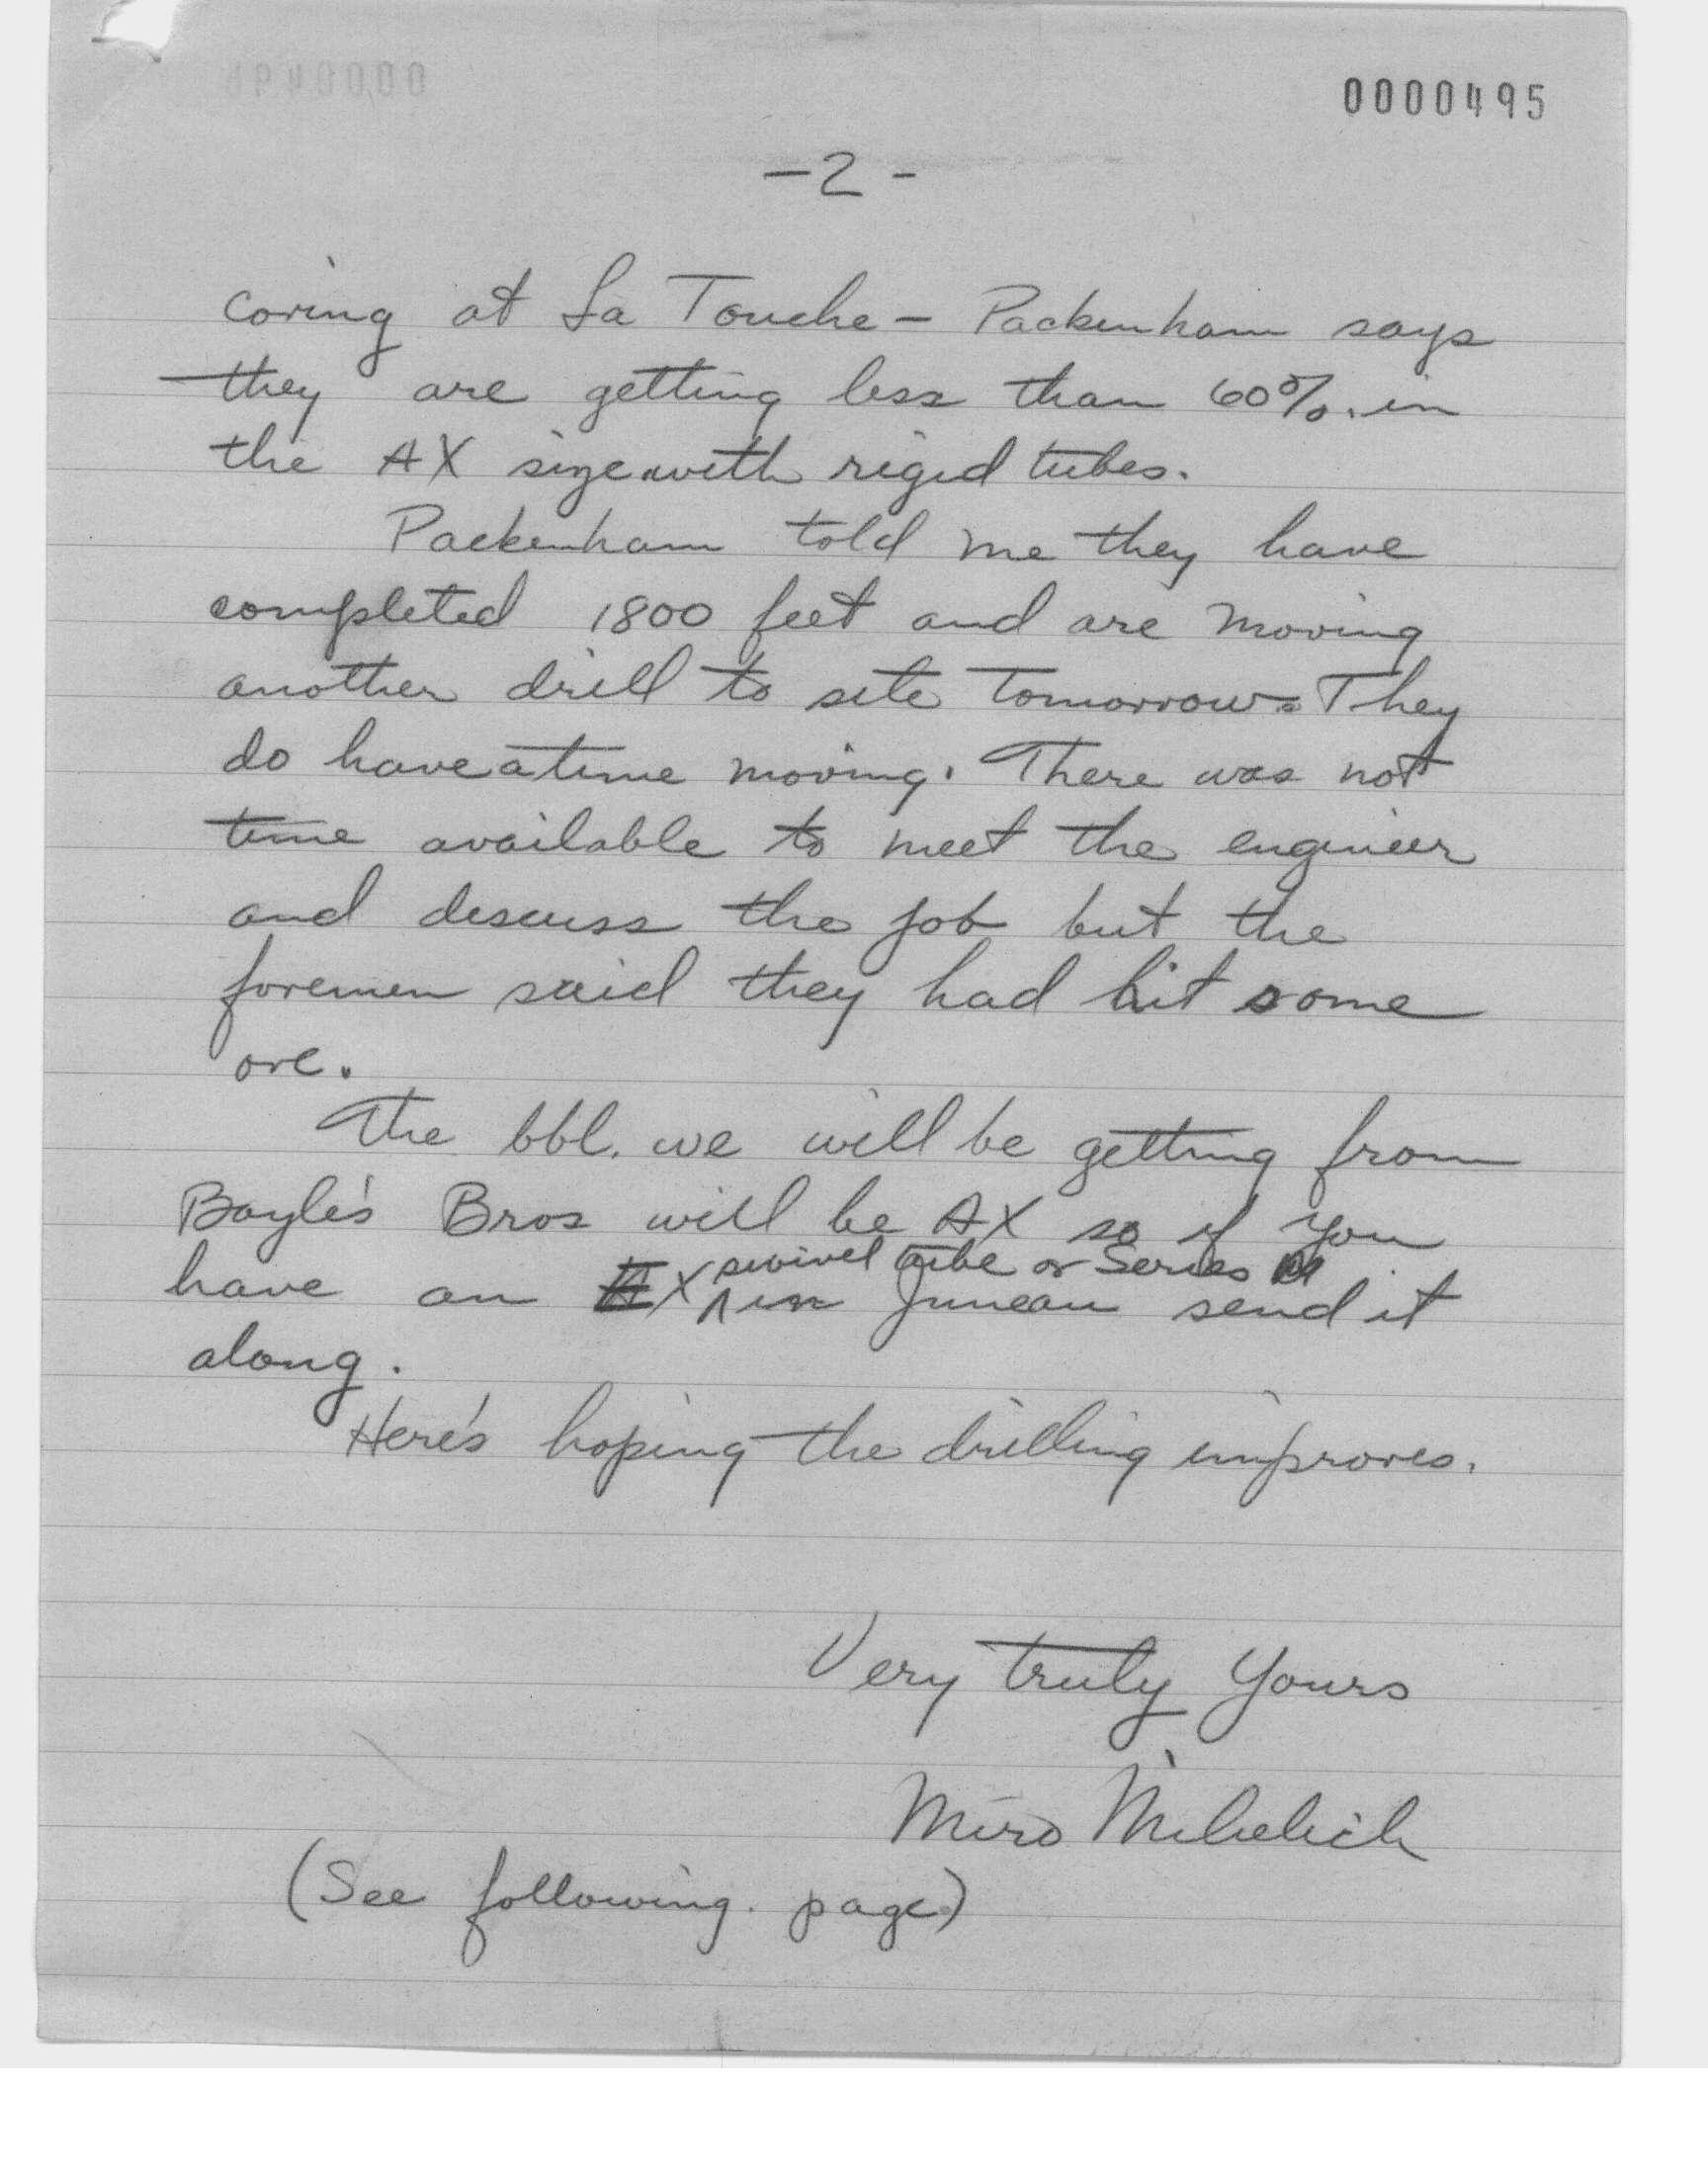 0000495
-2-
coring at La Touche - Packenham says
they are getting less than 60% in
the AX size with rigid tubes.
Packenham told me they have
completed 1800 feet and are moving
another drill to site tomorrow. They
do have a time moving. There was not
time available to meet the engineer
and discuss the job but the
foremen said they had hit some
ore.
The bbl. we will be getting from
Boyle's Bros will be AX so if you
swivel tube or Series M
have an AX in Juneau send it
along.
Here's hoping the drilling improves.
Very truly yours
Miro Mihelich
(See following page)